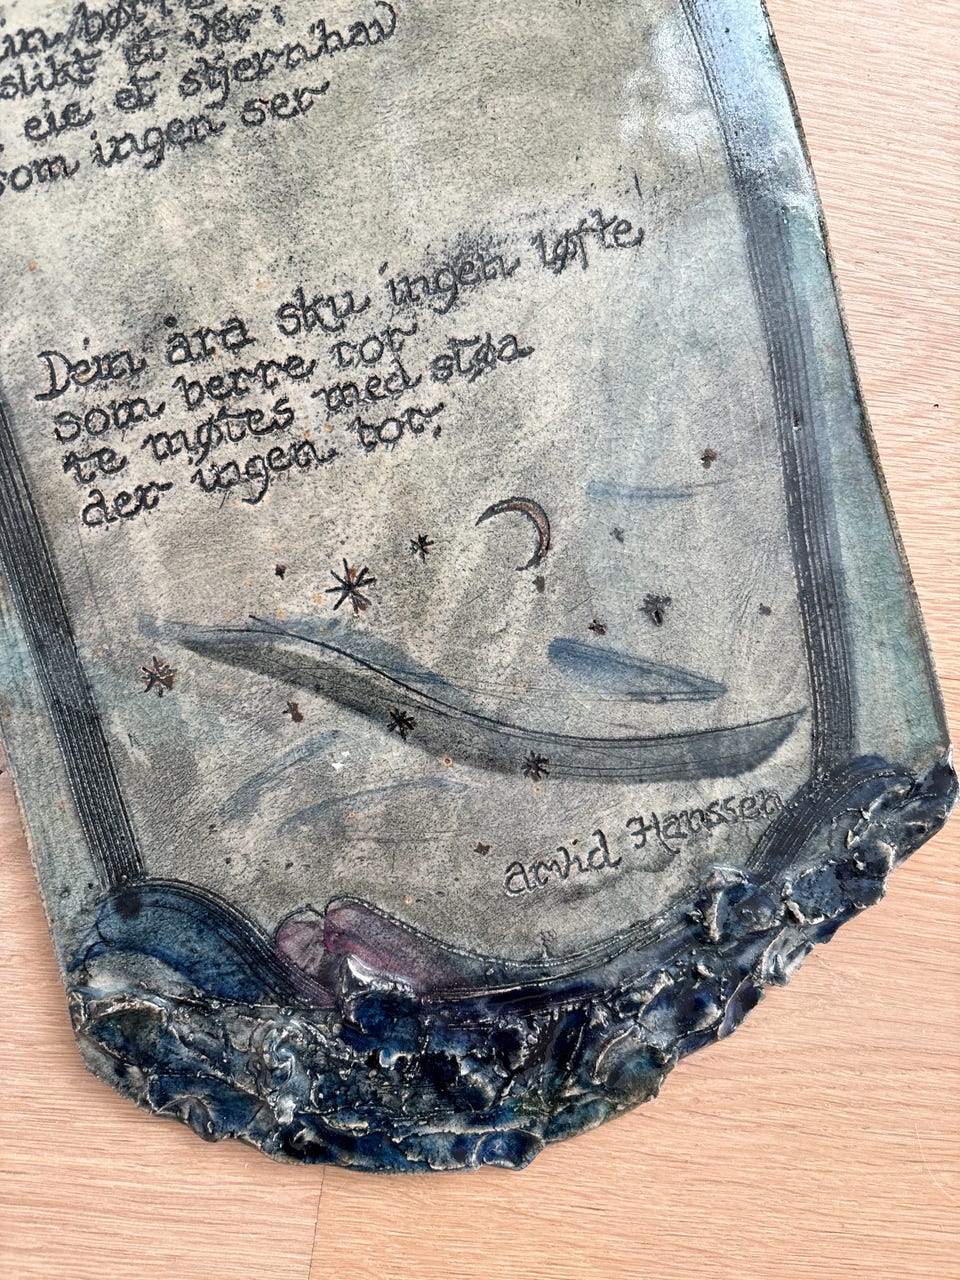 slikt et vér
eie et stjernhav
som ingen ser
Dém åra sku ingen løfte
som berre ror
te møtes med støa
der ingen bor.
Arvid Hanssen